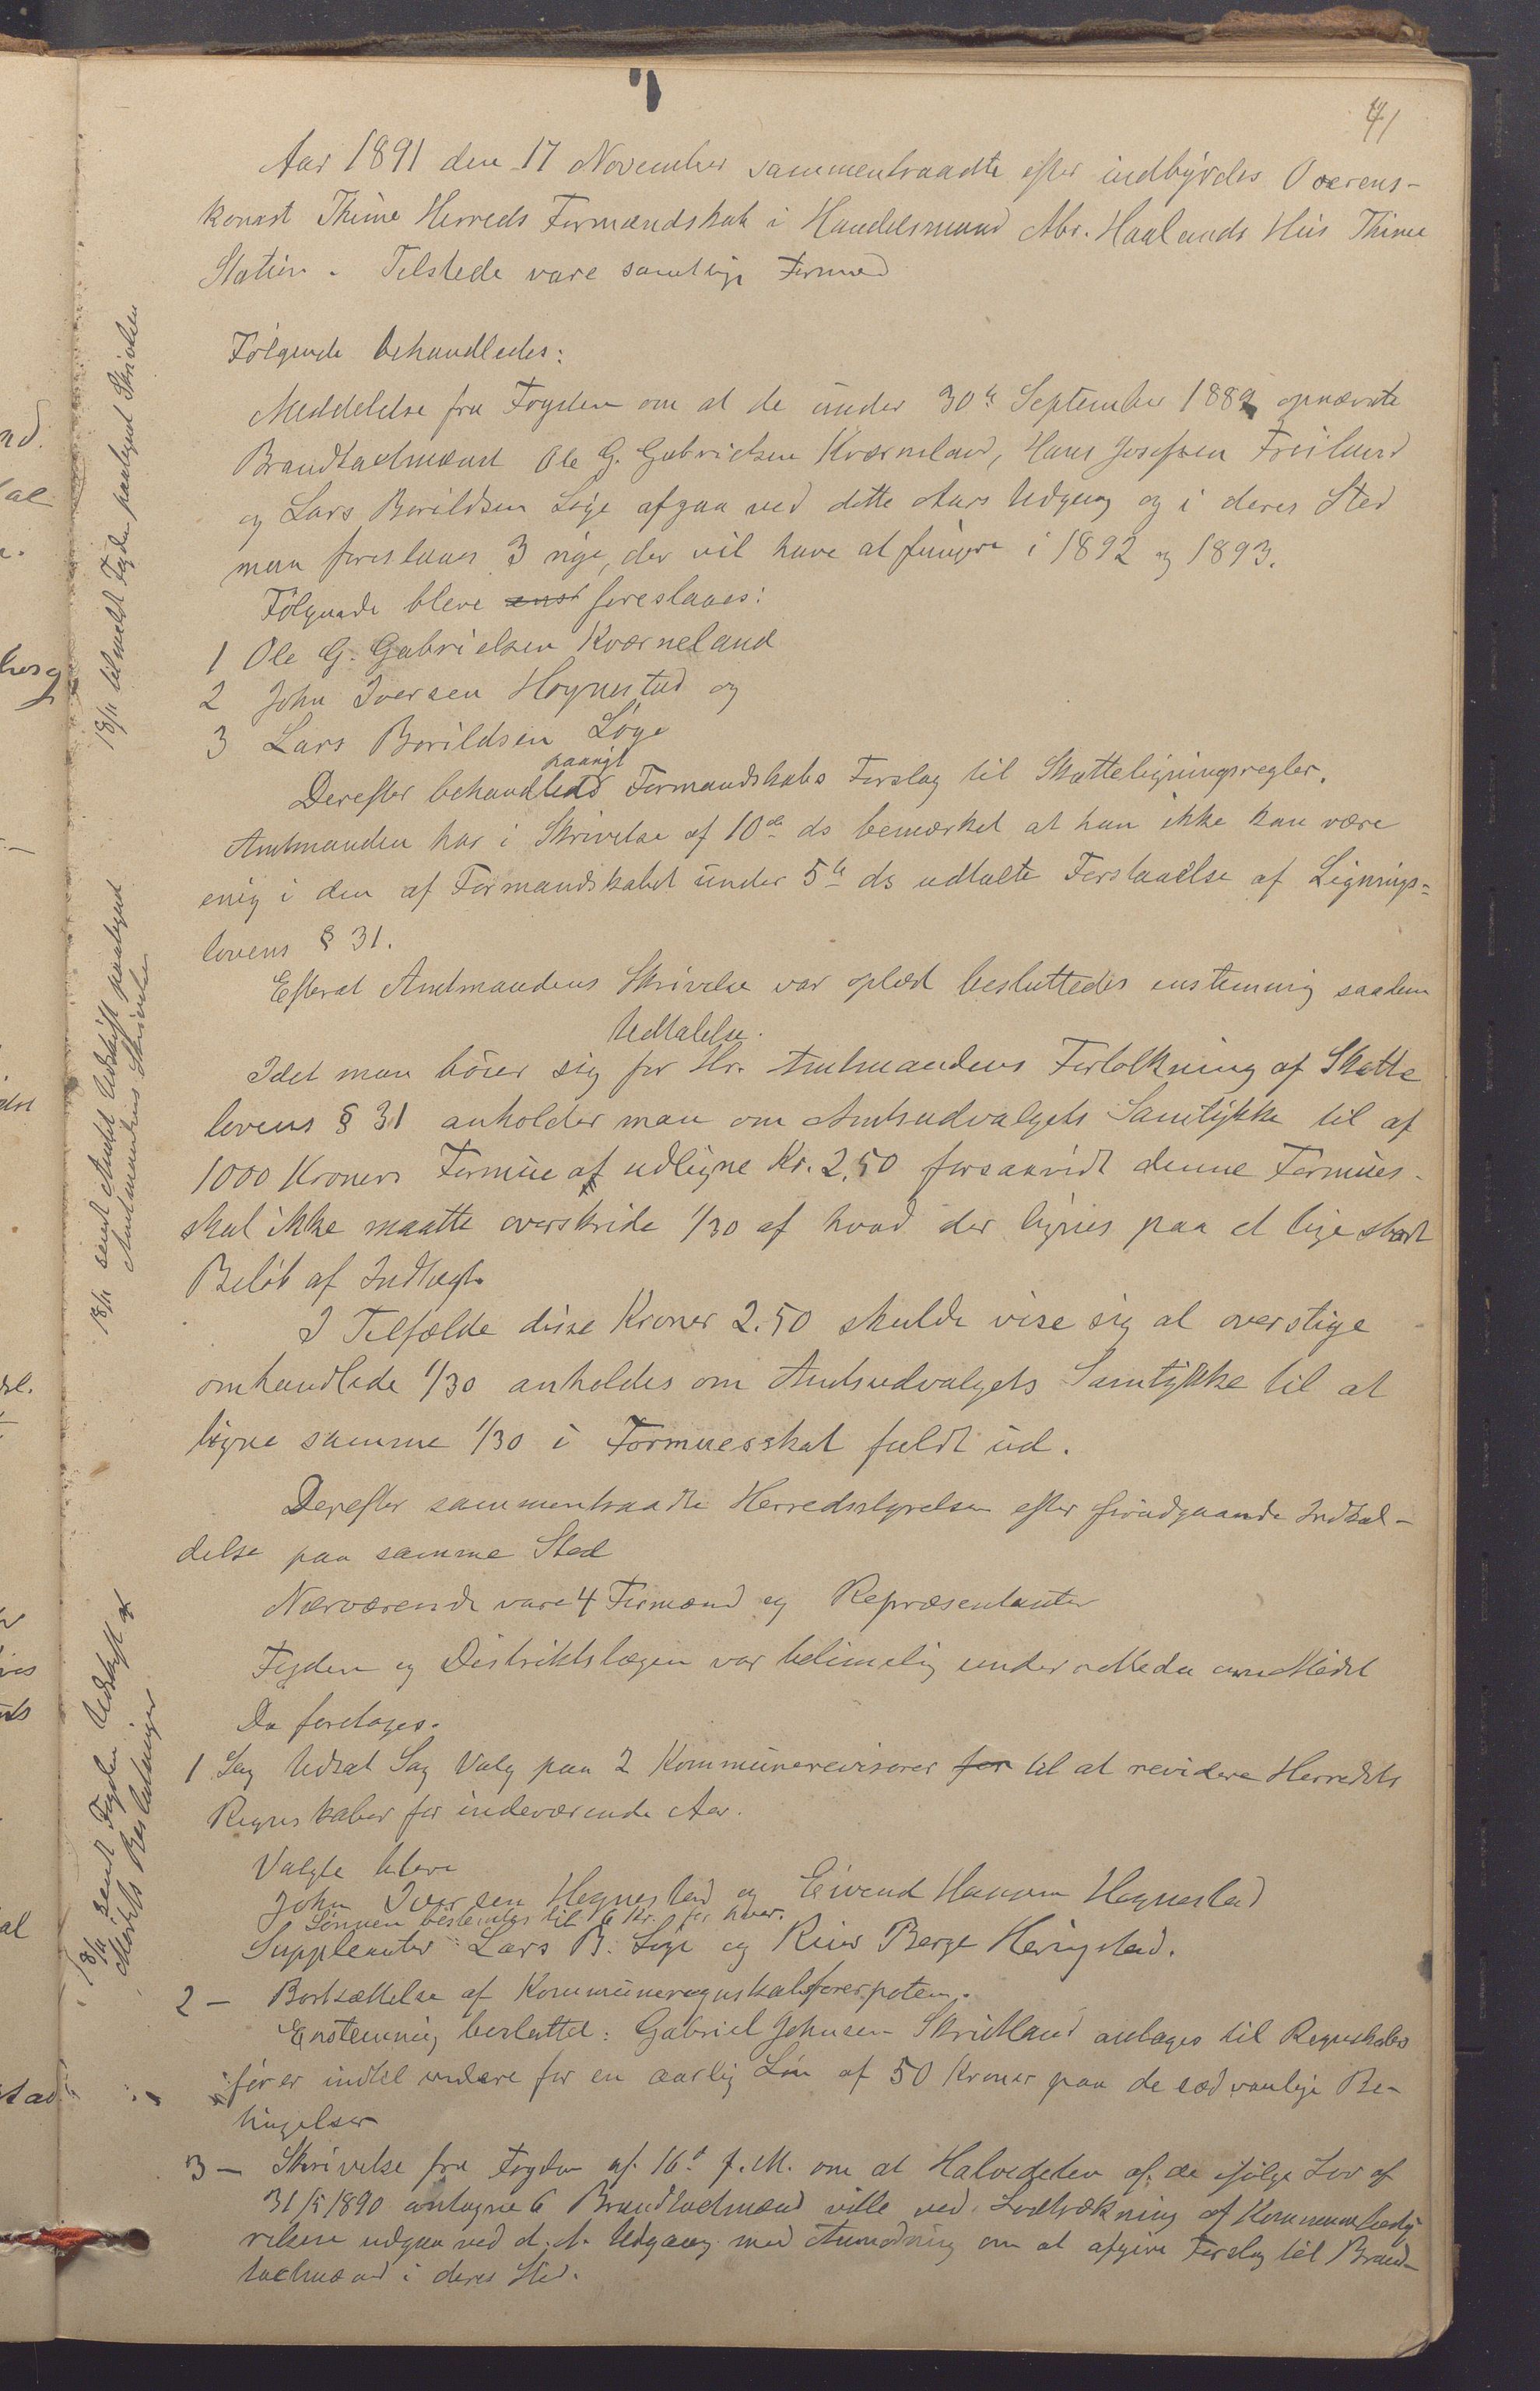 71
Aar 1891 den 17 November sammentraadte efter indbyrdes Overens-
komst Thime Herreds Formandskab i Handelsmand Abr. Haalands Hus Thime
Station. Tilstede vare samtlige Formænd
Følgende behandledes:
Meddelelse fra Fogden om at de under 30te September 1889 opnævnte
Brandtaxtmænd Ole G. Gabrielsen Kværneland, Hans Josefsen Frøiland
og Lars Borildsen Løge afgaa ved dette Aars Udgang og i deres Sted
maa foreslaaes 3 nye, der vil have at fungere i 1892 og 1893.
Følgende bleve enst foreslaaes:
1 Ole G. Gabrielsen Kværneland
2 John Iversen Hognestad og
3 Lars Borildsen Løge
Derefter behandledes paanyt Formandskabs Forslag til Skatteligningsregler.
Amtmanden har i Skrivelse af 10de ds bemærket at han ikke kan være
enig i den af Formandskabet under 5te ds udtalte Forstaaelse af Lignings-
lovens § 31.
Efterat Amtmandens Skrivelse var oplæst besluttedes enstemmig saadan
Udtalelse.
Idet man bøier sig for Hr. Amtmandens Fortolkning af Skatte
lovens § 31 anholder man om Amtsudvalgets Samtykke til af
1000 Kroners Formue at udligne Kr. 2,50 forsaavidt denne Formues-
skat ikke maatte overskride 1/30 af hvad der lignes paa et lige stort
Beløb af Indtægt.
I Tilfælde disse Kroner 2.50 skulde vise sig at overstige
omhandlede 1/30 anholdes om Amtsudvalgets Samtykke til at
ligne samme 1/30 i Formuesskat fuldt ud.
Derefter sammentraadte Herredsstyrelsen efter forudgaaende Indkal-
delse paa samme Sted
Nærværende vare 4 Formænd og Repræsentanter
Fogden og Distriktslægen var betimelig underrettede om Mødet
Da foretoges.
1 Sag Udsat Sag Valg paa 2 Kommunerevisorer for til at revidere Herredets
Regnskaber for indeværende Aar.
Valgte bleve
John Iversen Hognestad og Eivend Hansen Hognestad
Lønnen bestemtes til 6 Kr. for hver.
Supplenter: Lars B. Løge og Reier Berge Hæingstad.
2 — Bortsættelse af Kommuneregnskabsførerposten.
Enstemmig besluttet: Gabriel Johnsen Skrudland antages til Regnskabs
fører indtil videre for en aarlig Løn af 50 Kroner paa de sædvanlige Be-
tingelser
3 — Skrivelse fra Fogden af 16d f.M. om at Halvedelen af de ifølge Lov af
31/5 1890 antagne 6 Brandtaxtmænd ville ved Lodtrækning af Kommunebesty
relsen udgaa ved d. A. Udgang med Anmodning om at afgive Forslag til Brand-
taxtmænd i deres Sted.
18/11 tilmeldt Fogden paategnet Skrivelsen
18/11 sendt Amtet Udskrift paategnet
Amtmandens Skrivelse
18/11 sendt Fogden Udskrift af
Mødets Beslutninger